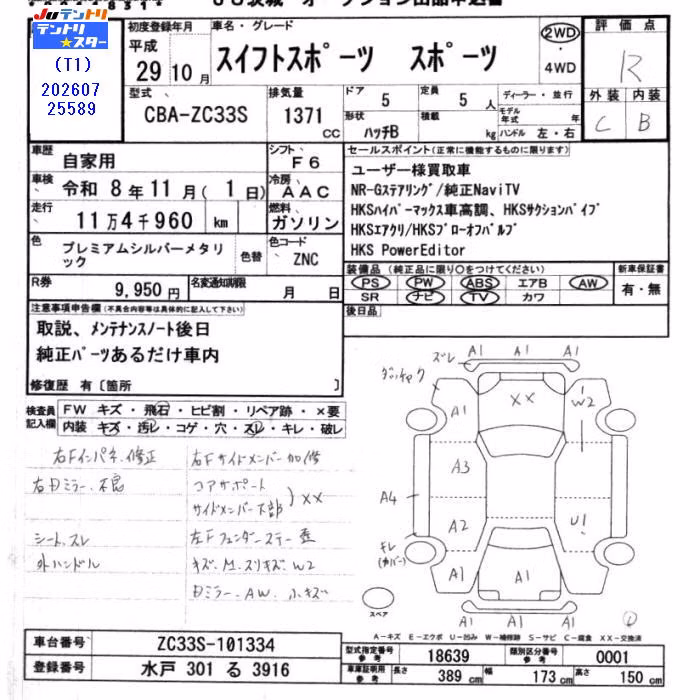 Juテントリ
テントリ★スター
(T1)
202607
25589
初度登録年月
平成
29年10月
車名・グレード
スイフトスポーツ スポーツ
2WD
・
4WD
評価点
R
外装 内装
C B
型式
CBA-ZC33S
排気量
1371
CC
ドア
5
定員
5人
形状
ハッチB
積載
kg
ディーラー・並行
モデル年式 年
ハンドル 左・右
車歴
自家用
シフト
F6
車検
令和 8年11月(1日)
冷房
AAC
走行
11万4千960 km
燃料
ガソリン
色
プレミアムシルバーメタリック
色替
色コード
ZNC
R券
9,950円
名変通知期限
月 日
セールスポイント(正常に機能するものに限ります)
ユーザー様買取車
NR-Gステアリング/純正NaviTV
HKSハイパーマックス車高調、HKSサクションパイプ
HKSエアクリ/HKSブローオフバルブ
HKS PowerEditor
装備品(純正品に限り○をつけてください)
PS PW ABS エアB AW
SR ナビ TV カワ
新車保証書
有・無
後日品
注意事項申告欄(不具合内容等は具体的に記入して下さい)
取説、メンテナンスノート後日
純正パーツあるだけ車内
修復歴 有〔箇所 〕
検査員記入欄
FW キズ・飛石・ヒビ割・リペア跡・×要
内装 キズ・汚レ・コゲ・穴・スレ・キレ・破レ
右Fインパネ、修正
右Dミラー、不良
シート、スレ
外ハンドル
右Fサイドメンバー加修
コアサポート
サイドメンバー下部
)××
左Fフェンダーステー 歪
キズ、M、スリキズ W2
Dミラー、AW、小キズ
ズレ A1 A1 A1
A1
××
W2
A3
A4
A2
U1
キレ
(カバー)
A1 A1 A1
スペア
A-キズ E-エクボ U-凹み W-補修跡 S-サビ C-腐食 XX-交換済
車台番号
ZC33S-101334
登録番号
水戸 301 る 3916
型式指定番号 参考
18639
類別区分番号 参考
0001
車庫証明用 参考
長さ
389 cm
幅
173 cm
高さ
150 cm